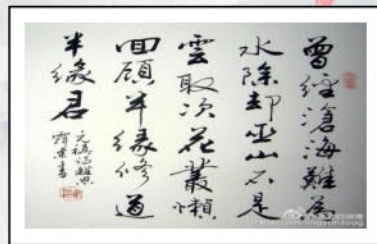 曾經滄海難為
水除却巫山不是
雲取次花叢懶
回顧半緣修道
半緣君
元稹詩離思